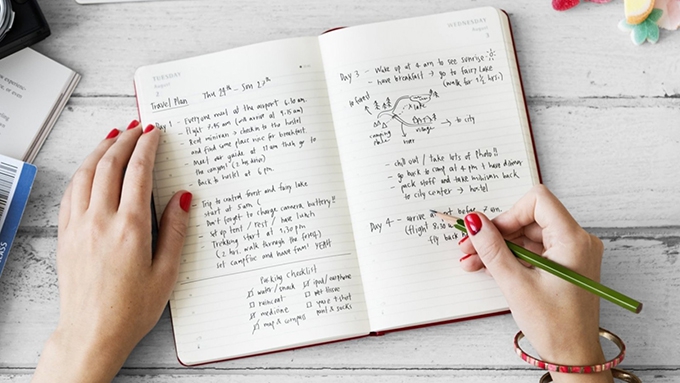 TUESDAY
August
2
Travel Plan Thu 28th - Sun
Day 1 - Everyone meet at the airport 6.30 am
- Flight 7.45 am (will arrive at 9.15 am)
- Rent minivan → checkin to the hostel
and find some place nice for breakfast.
- Meet our guide at 11 am then go to
the congost (2 by down)
- Back to hostel at 6 pm.
- Trip to central forest and fairy lake
start at 5am (
- Don't forget to charge camera, battery!!
- Set up tent / rest / have lunch
- Trekking start at 1.30 pm
(2 hrs. walk through the forest)
- set campfire and have fun! YEAH
Packing Checklist
water/snack
raincoat
medicine
map & compass
ipod/earphone
wet tissue
spare t-shirt
pant & socks
WEDNESDAY
August
3
Day 3 - Wake up at 4 am to see sunrise
- have breakfast → go to fairy lake
(walk for 1 1/2 hrs.)
to forest
camping place
river
→ to city
- chill out / take lots of photo!!
- go back to camp at 4 pm + have dinner
- pack stuff and take minivan back
to city center → hostel
Day 4 - arrive at before 7 am
(flight 8:30
fly back